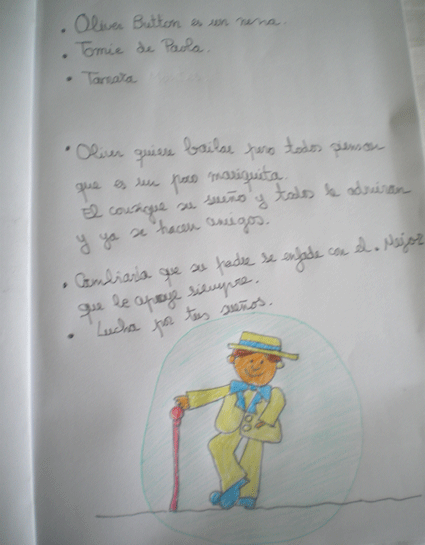 • Oliver Button es un nena.
• Tomie de Paola.
• Tamara
• Oliver quiere bailar pero todos piensan
que es un poco mariquita.
El consigue su sueño y todos le admiran
y ya se hacen amigos.
• Cambiaría que su padre se enfade con el. Mejor
que le apoye siempre.
• Lucha por tus sueños.